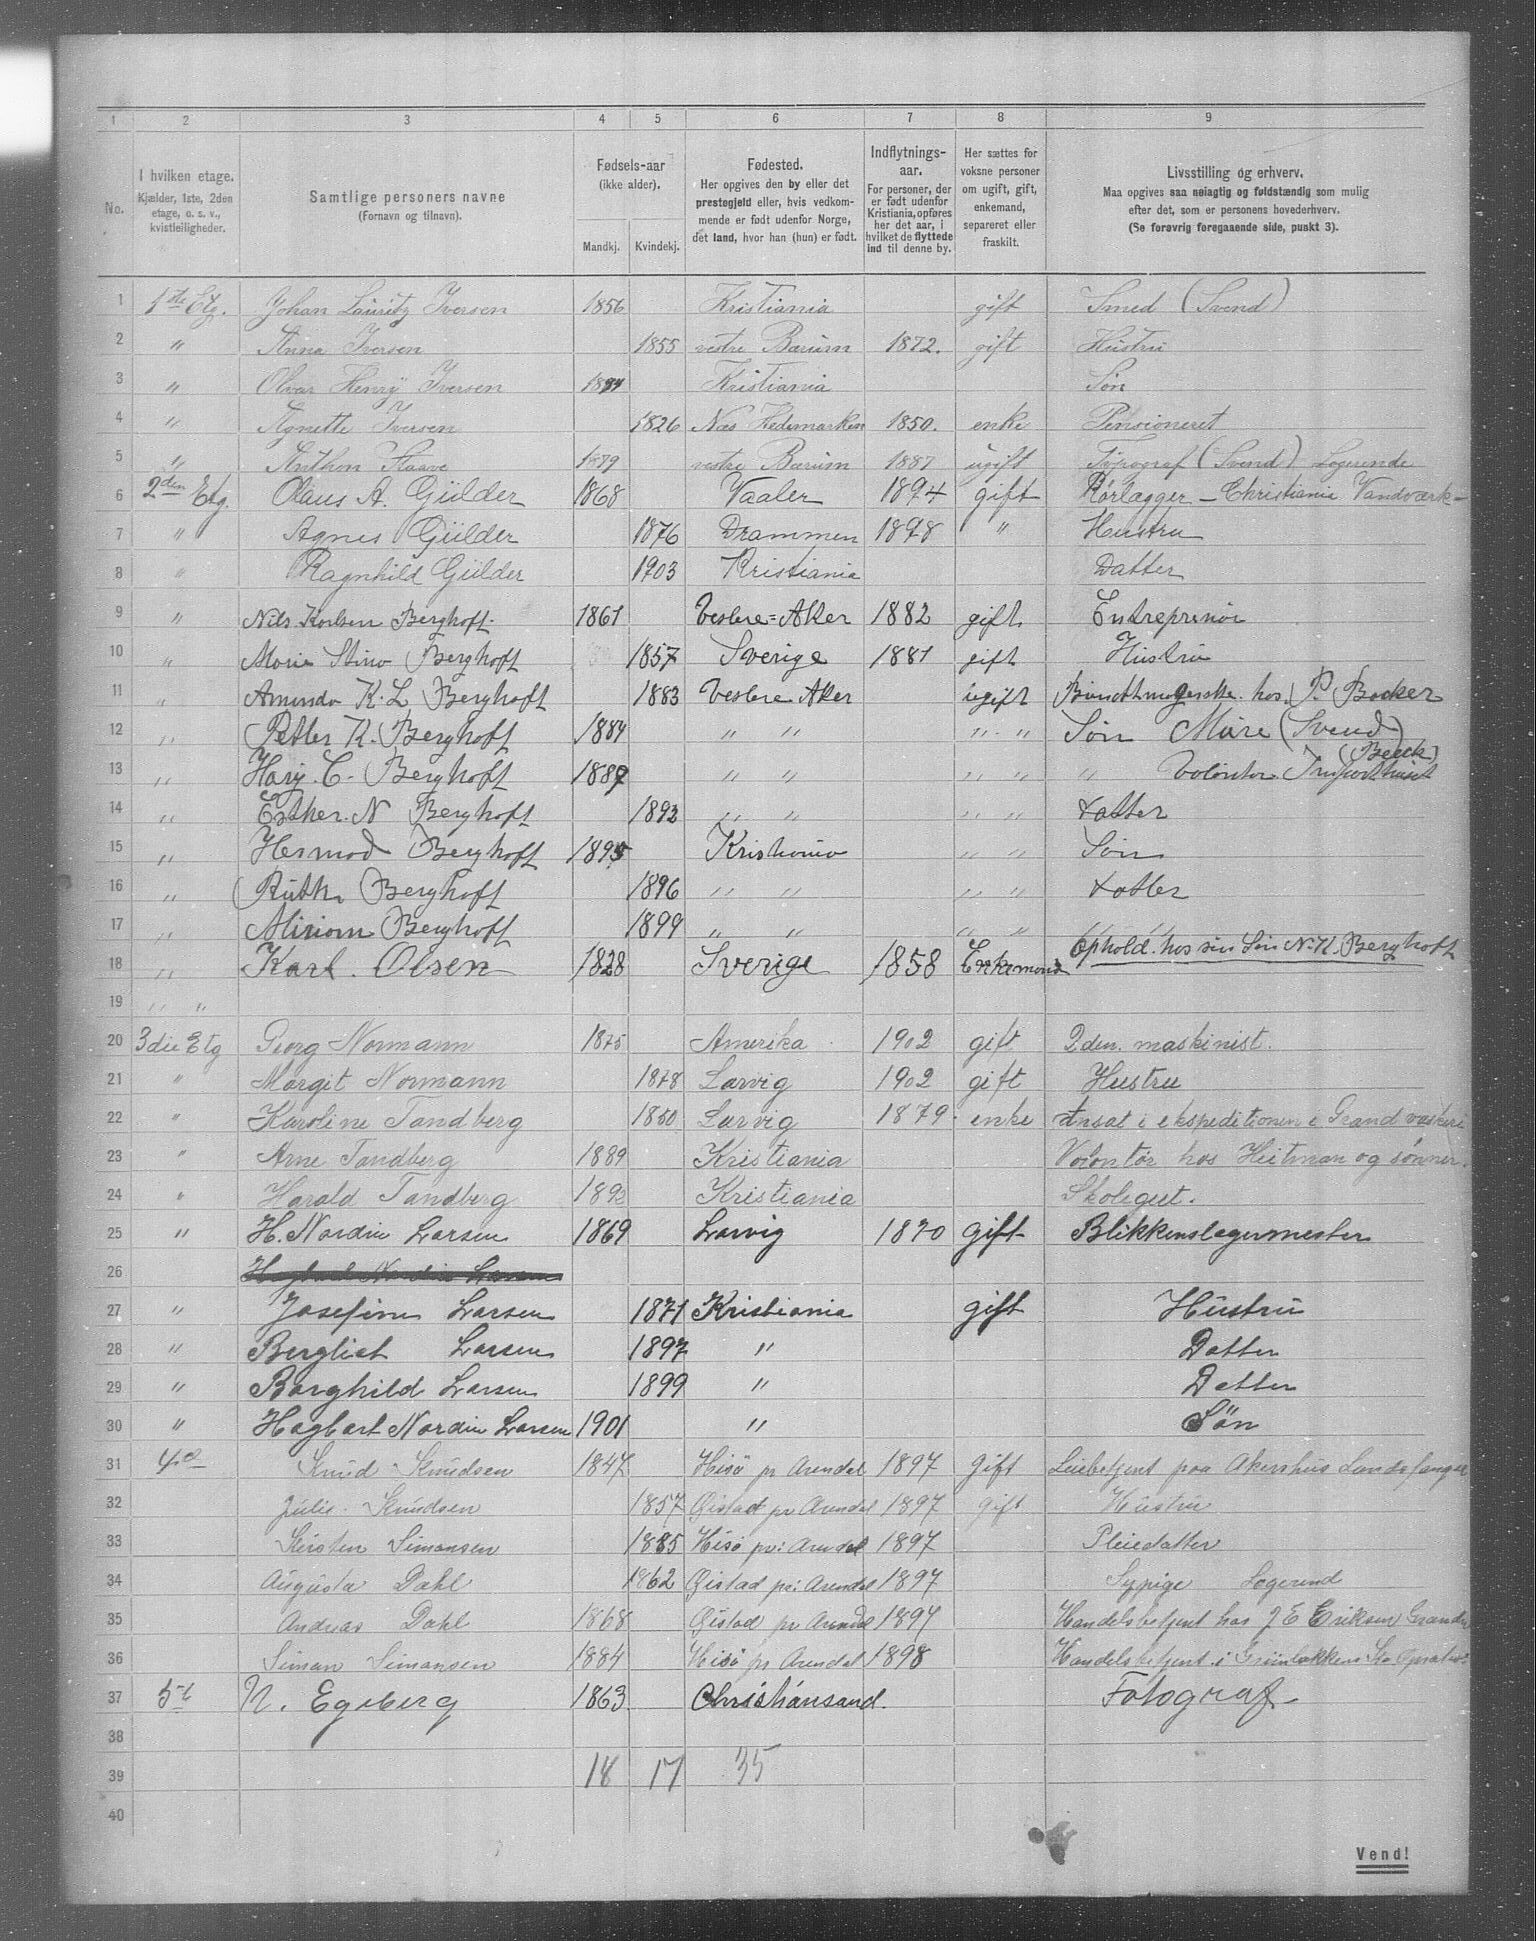 1 2 3 4 5 6 7 8 9
No. | I hvilken etage. Kjælder, 1ste, 2den etage, o. s. v., kvistleiligheder. | Samtlige personers navne (Fornavn og tilnavn). | Fødsels-aar (ikke alder). Mandkj. Kvindekj. | Fødested. Her opgives den by eller det prestegjeld eller, hvis vedkommende er født udenfor Norge, det land, hvor han (hun) er født. | Indflytnings-aar. For personer, der er født udenfor Kristiania, opføres her det aar, i hvilket de flyttede ind til denne by. | Her sættes for voksne personer om ugift, gift, enkemand, separeret eller fraskilt. | Livsstilling og erhverv. Maa opgives saa nøiagtig og fuldstændig som mulig efter det, som er personens hovederhverv. (Se forøvrig foregaaende side, punkt 3).
1 1ste Etg. Johan Lauritz Iversen 1856 Kristiania gift Smed (Svend)
2 " Anna Iversen 1855 vestre Bærum 1872. gift Hustru
3 " Olvar Henry Iversen 1894 Kristiania Søn
4 " Agnette Iversen 1826 Næs Hedemarken 1850. enke Pensioneret
5 " Anthon Haave 1879 vestre Bærum 1887 ugift Typograf (Svend) Logerende
6 2den Etg. Olaus A. Gülder 1868 Vaaler 1894 gift Rørlægger - Christiania Vandværk -
7 " Agnes Gülder 1876 Drammen 1898 " Hustru
8 " Ragnhild Gülder 1903 Kristiania Datter
9 " Nils Karlsen Berghoft. 1861 Vestre=Aker 1882 gift. Entreprenør
10 " Marie Stina Berghoft 1857 Sverige 1881 gift Hustru
11 " Amanda K. L Berghoft 1883 Vestre Aker ugift hos. P. Backer
12 " Petter K. Berghoft 1884 " " " " Søn Murer (Svend)
13 " Harj. C. Berghoft 1887 " " " " " Volontør Importhuset (Beck)
14 " Esther. N Berghoft 1892 " " " " Datter
15 " Hermod Berghoft 1895 Kristiania " " Søn
16 " Ruth Berghoft 1896 " " " " Datter
17 " Miriam Berghoft 1899 " " " " " "
18 " Karl. Olsen 1828 Sverige 1858 Enkemand Ophold. hos sin Søn N. K. Berghoft
19 " "
20 3die Etg Georg Normann 1875 Amerika 1902 gift 2den. maskinist.
21 " Margit Normann 1878 Larvig 1902 gift Hustru
22 " Karoline Tandberg 1850 Larvig 1879. enke Ansat i ekspeditionen i Grand vaskeri
23 " Arne Tandberg 1889 Kristiania Volontør hos Heitman og sønner.
24 " Harald Tandberg 1892 Kristiania Skolegut.
25 " H. Nordin Larsen 1869 Larvig 1870 gift Blikkenslagermester
26 Hagbart Nordin Larsen
27 " Josefine Larsen 1871 Kristiania gift Hustru
28 " Bergliot Larsen 1897 " Datter
29 " Borghild Larsen 1899 " Datter
30 " Hagbart Nordin Larsen 1901 " Søn
31 4de Knud Knudsen 1847 Hisø pr Arendal 1897 gift paa Akershus Landsfængsel
32 Julie. Knudsen 1857 Øistad pr Arendal 1897 gift Hustru
33 Kirsten Simonsen 1885 Hisø pr: Arendal 1897 Pleiedatter
34 Augusta Dahl 1862 Øistad pr: Arendal 1897 Sypige Logerend
35 Andreas Dahl 1868 Øistad pr Arendal 1897 Handelsbetjent hos J E Eriksen
36 Simon Simonsen 1884 Hisø pr Arendal 1898 Handelsbetjent i Grünløkken
37 5te N. Egeberg 1863 Christiansand. Fotograf -
38
39 18 17 35
40
Vend!